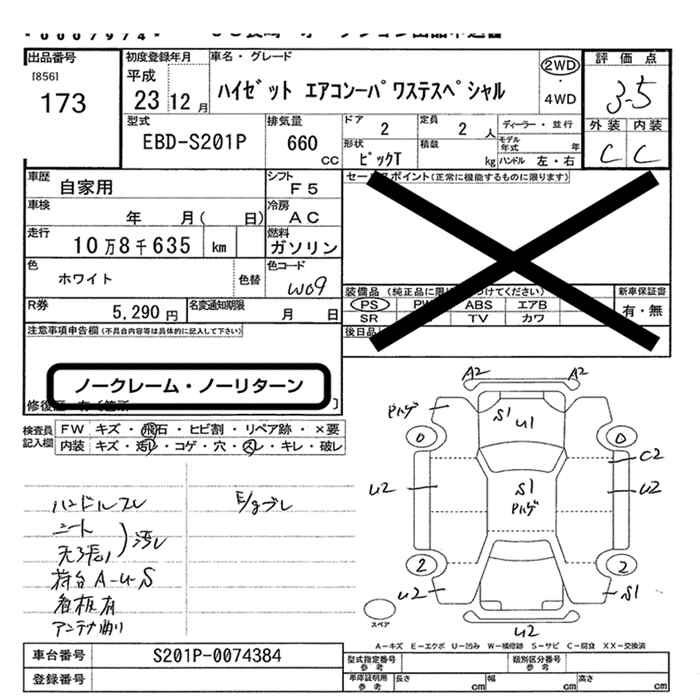 出品番号
[856]
173
初度登録年月
平成
23年12月
車名・グレード
ハイゼット エアコンーパワステスペシャル
2WD
4WD
評価点
3-5
外装 内装
C C
型式
EBD-S201P
排気量
660
CC
ドア 2
定員 2 人
ディーラー・並行
形状 ピックT
積載 kg
モデル年式 年
ハンドル 左・右
車歴
自家用
シフト
F5
車検
年 月( 日)
冷房
AC
走行
10万8千635 km
燃料
ガソリン
色
ホワイト
色替
色コード
W09
R券
5,290円
名変通知期限
月 日
セー スポイント(正常に機能するものに限ります)
装備品(純正品に限 つけてください)
PS PW ABS エアB
SR TV カワ
新車保証書
有・無
後日品
注意事項申告欄(不具合内容等は具体的に記入して下さい)
ノークレーム・ノーリターン
検査員
記入欄
FW キズ・飛石・ヒビ割・リペア跡・×要
内装 キズ・汚レ・コゲ・穴・スレ・キレ・破レ
ハンドルスレ
シート
天張り
汚レ
荷台A-U-S
看板有
アンテナ曲り
E/gブレ
A2 A2
Pハゲ
S1 U1
0 0
C2
U2 U2
S1
Pハゲ
2 2
U2 S1
U2
スペア
A-キズ E-エクボ U-凹み W-補修跡 S-サビ C-腐食 XX-交換済
車台番号 S201P-0074384
登録番号
型式指定番号
参考
類別区分番号
参考
車庫証明用
参考
長さ cm
幅 cm
高さ cm